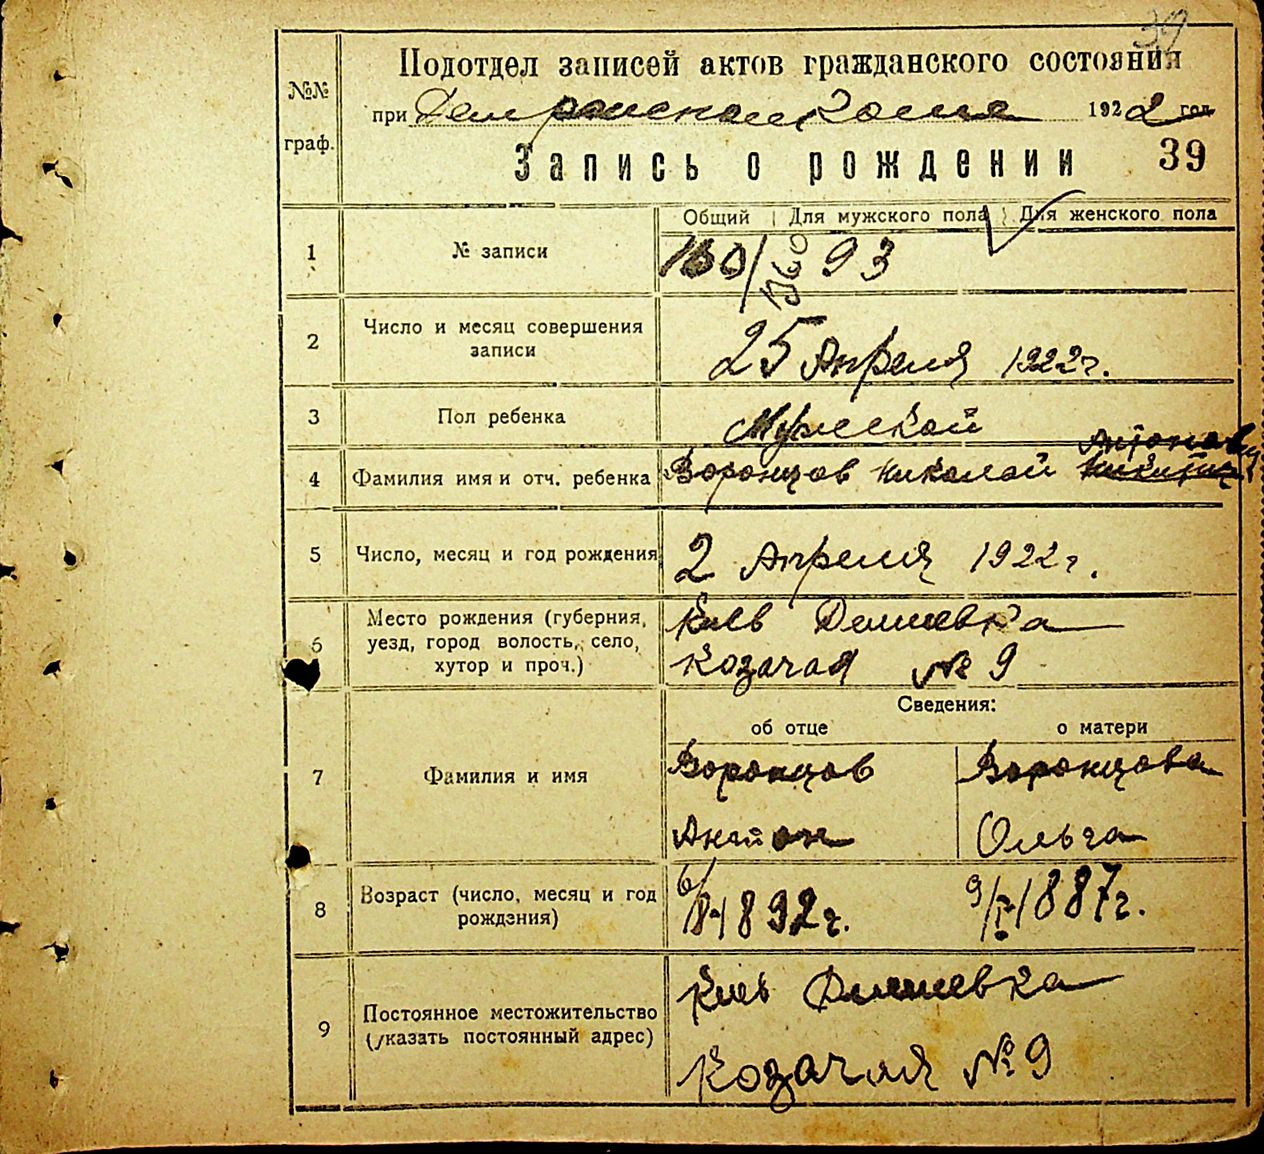 39
№№
граф.
Подотдел записей актов гражданского состояния
при 1922 год
Запись о рождении 39
Общий Для мужского пола Для женского пола
1 № записи 160/ 93
2 Число и месяц совершения
записи
25 Апреля 1922 г.
3 Пол ребенка Мужской
Антонович
4 Фамилия имя и отч. ребенка Воронцов Николай
5 Число, месяц и год рождения 2 Апреля 1922 г.
6 Место рождения (губерния,
уезд, город волость, село,
хутор и проч.)
Киев Демиевка
Козачая № 9
Сведения:
об отце о матери
7 Фамилия и имя
Воронцов Воронцова
Антон Ольга
8 Возраст (число, месяц и год
рождения)
1892 г. 1887 г.
9 Постоянное местожительство
(указать постоянный адрес)
Киев Демиевка
Козачая № 9